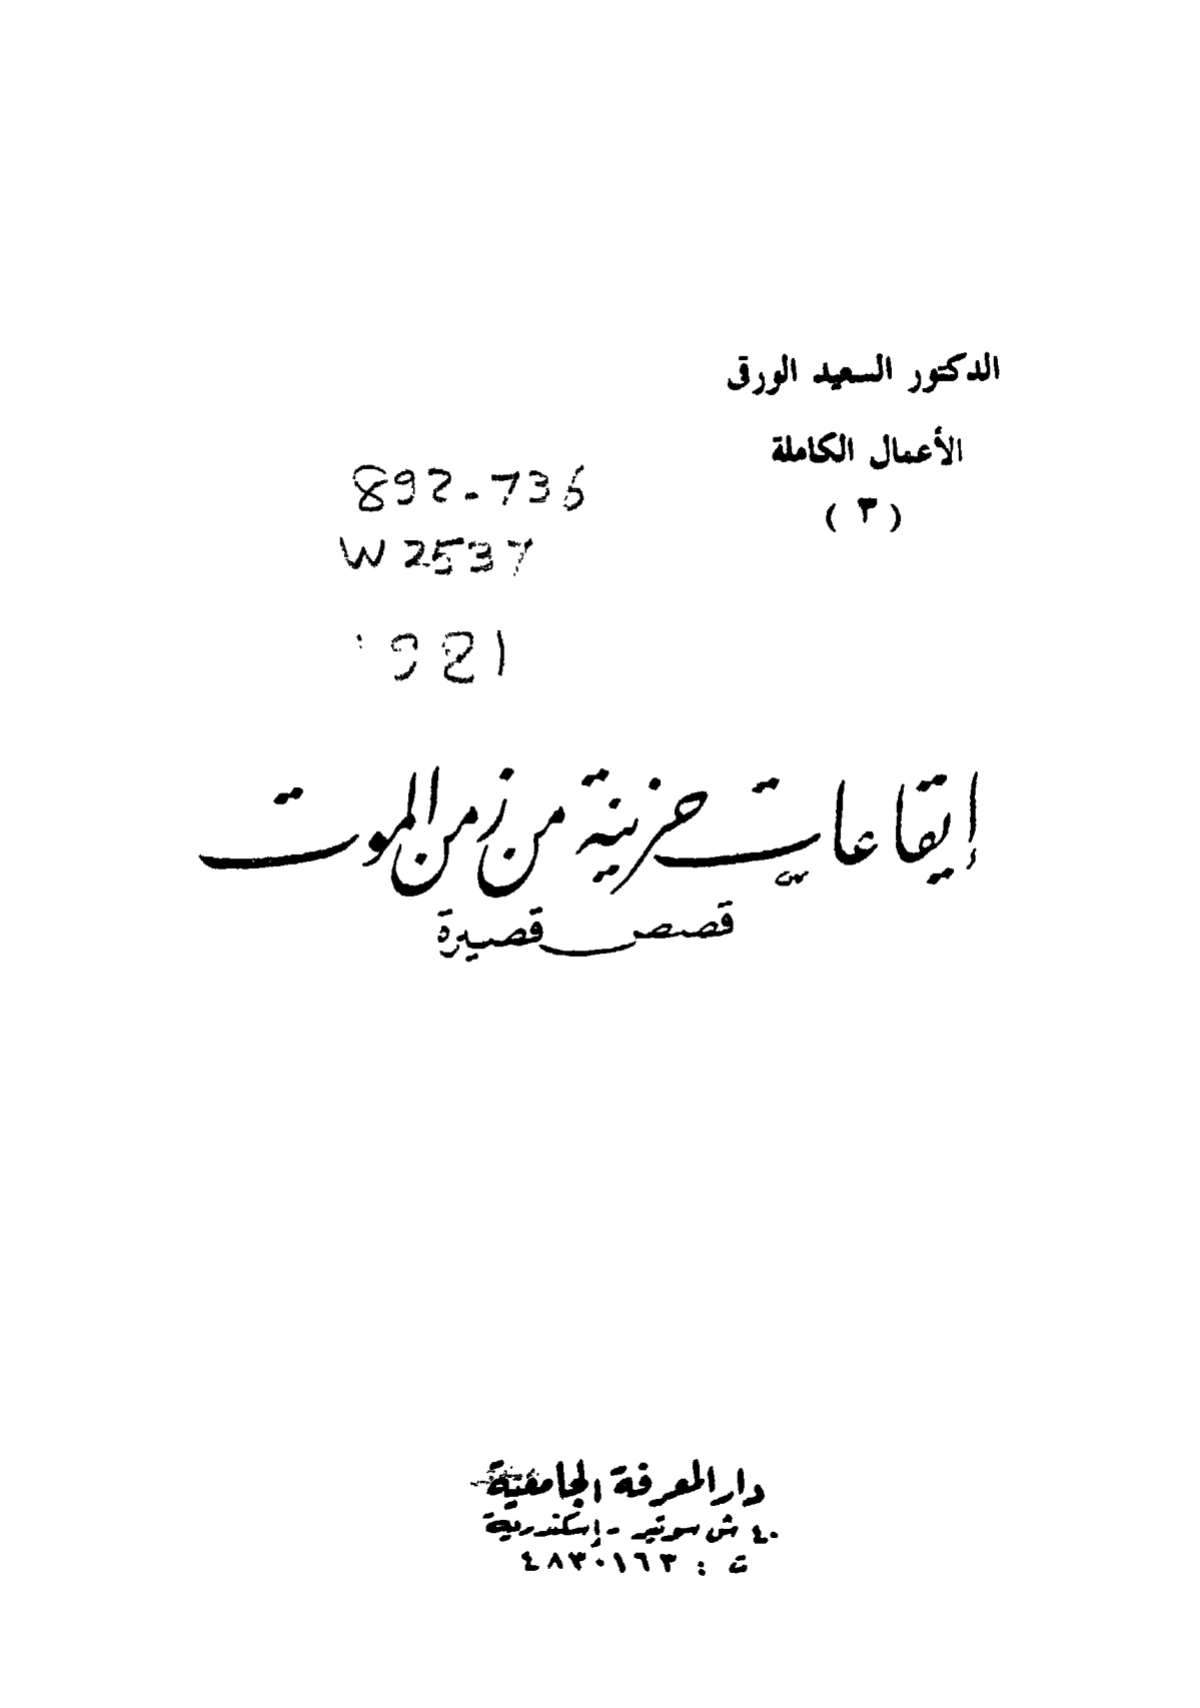 الدكتور السعيد الورقى
الأعمال الكاملة
( ٣ )
892-736
W 2537
1921
إيقاعات حزينة من زمن الموت
قصص قصيرة
دار المعرفة الجامعية
٤٠ ش سوتير - إسكندرية
ت : ٤٨٣٠١٦٣